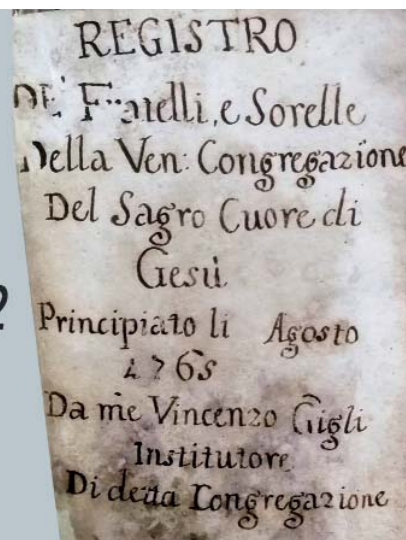 REGISTRO
DE' Fratelli, e Sorelle
Della Ven: Congregazione
Del Sagro Cuore di
Gesù
Principiato li Agosto
1765
Da me Vincenzo Gigli
Institutore
Di detta Congregazione